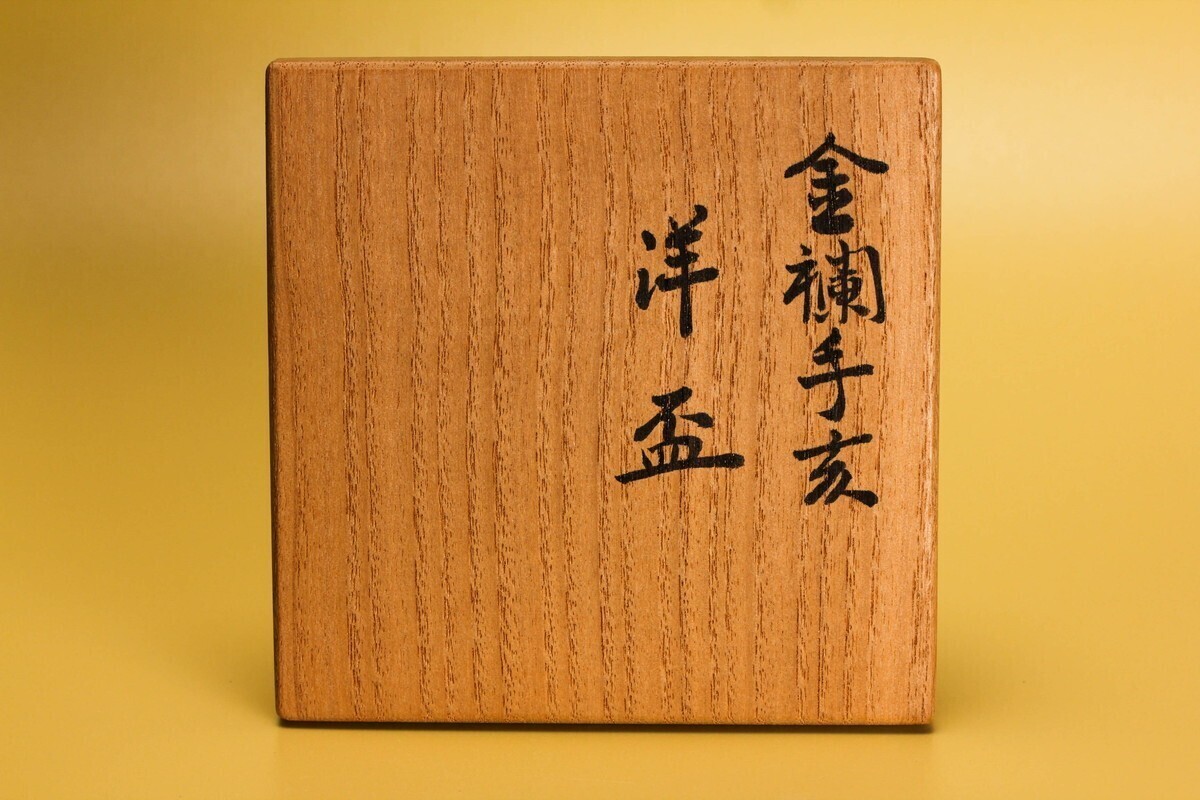 金襴手亥
洋盃